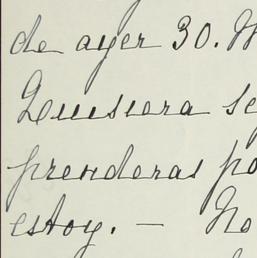 de ayer 30.
Quisiera
prenderas
estoy. — No